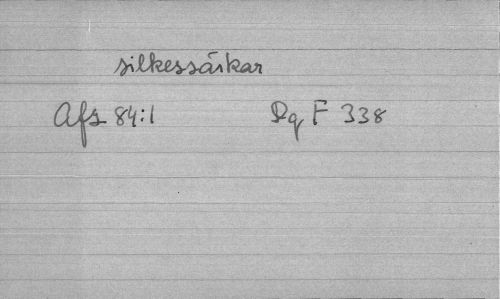 silkessärkar
Afs 84:1 Rq F 338